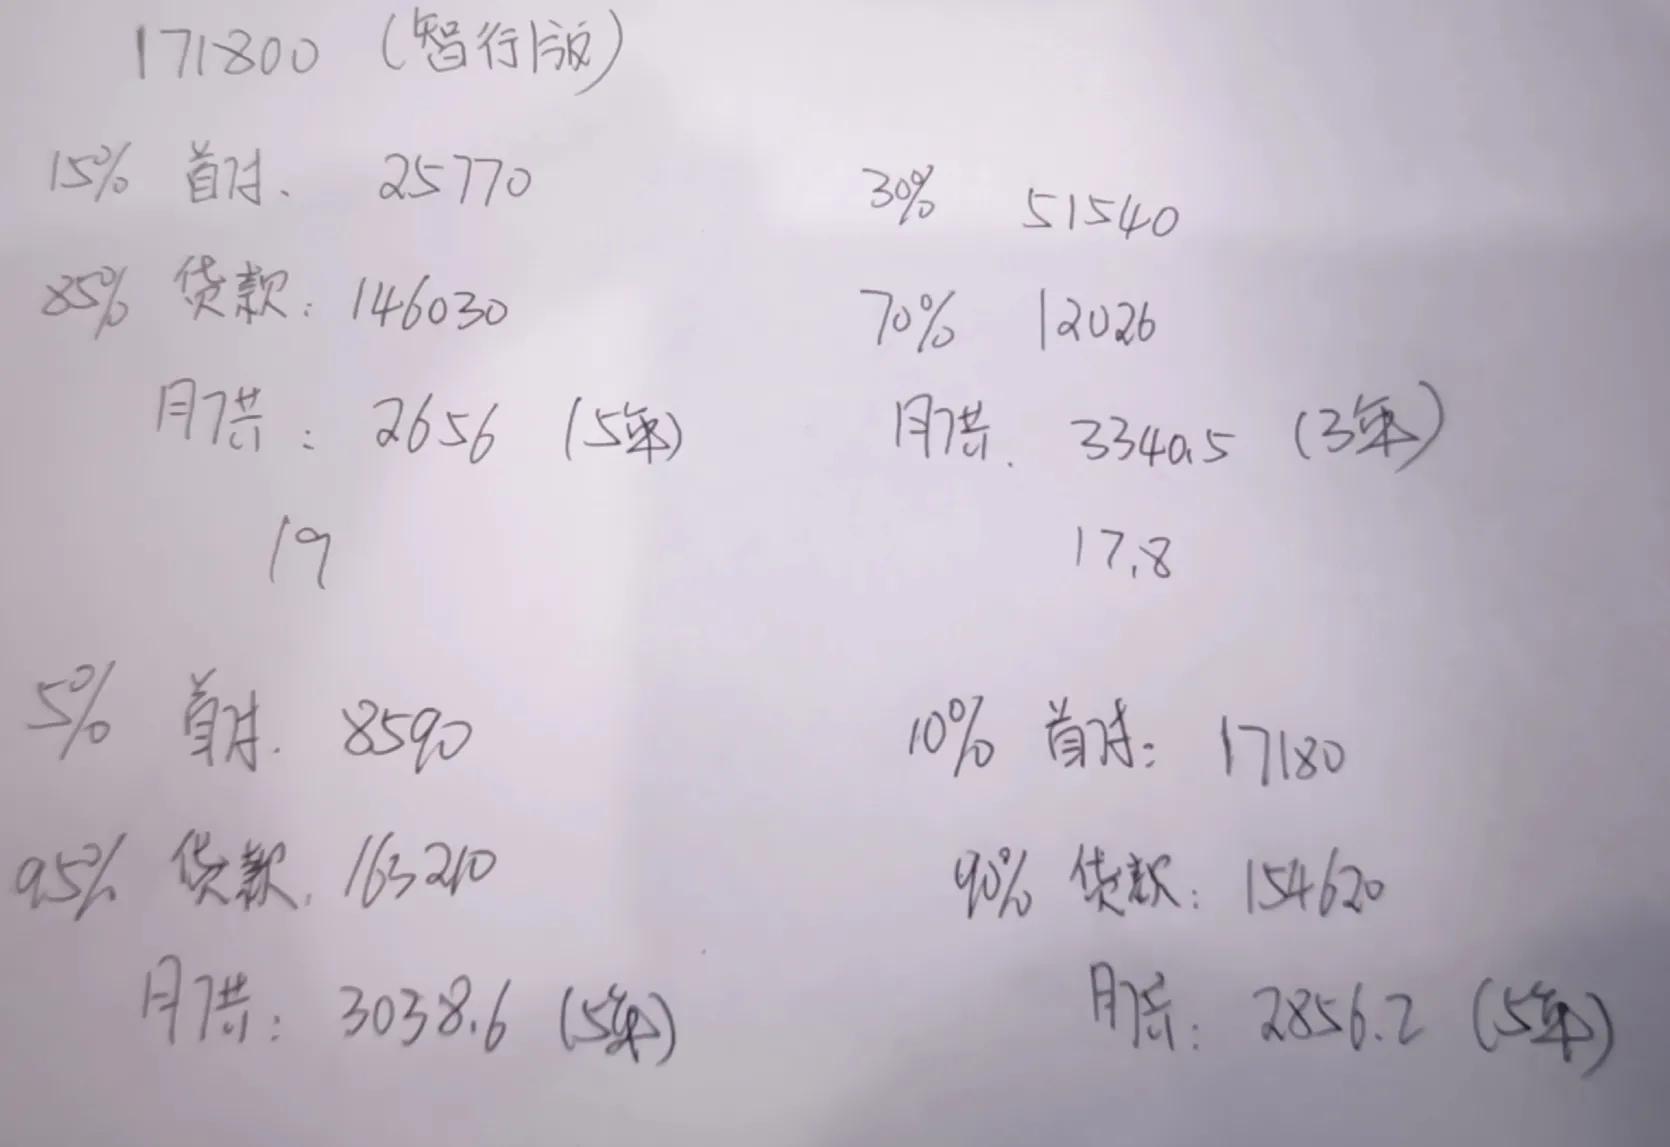 171800 (智行版)
15% 首付. 25770
85% 贷款: 146030
月供: 2656 (5年)
19
30% 51540
70% 12026
月供. 3340.5 (3年)
17.8
5% 首付. 8590
95% 贷款. 163210
月供: 3038.6 (5年)
10% 首付: 17180
90% 贷款: 154620
月供: 2856.2 (5年)